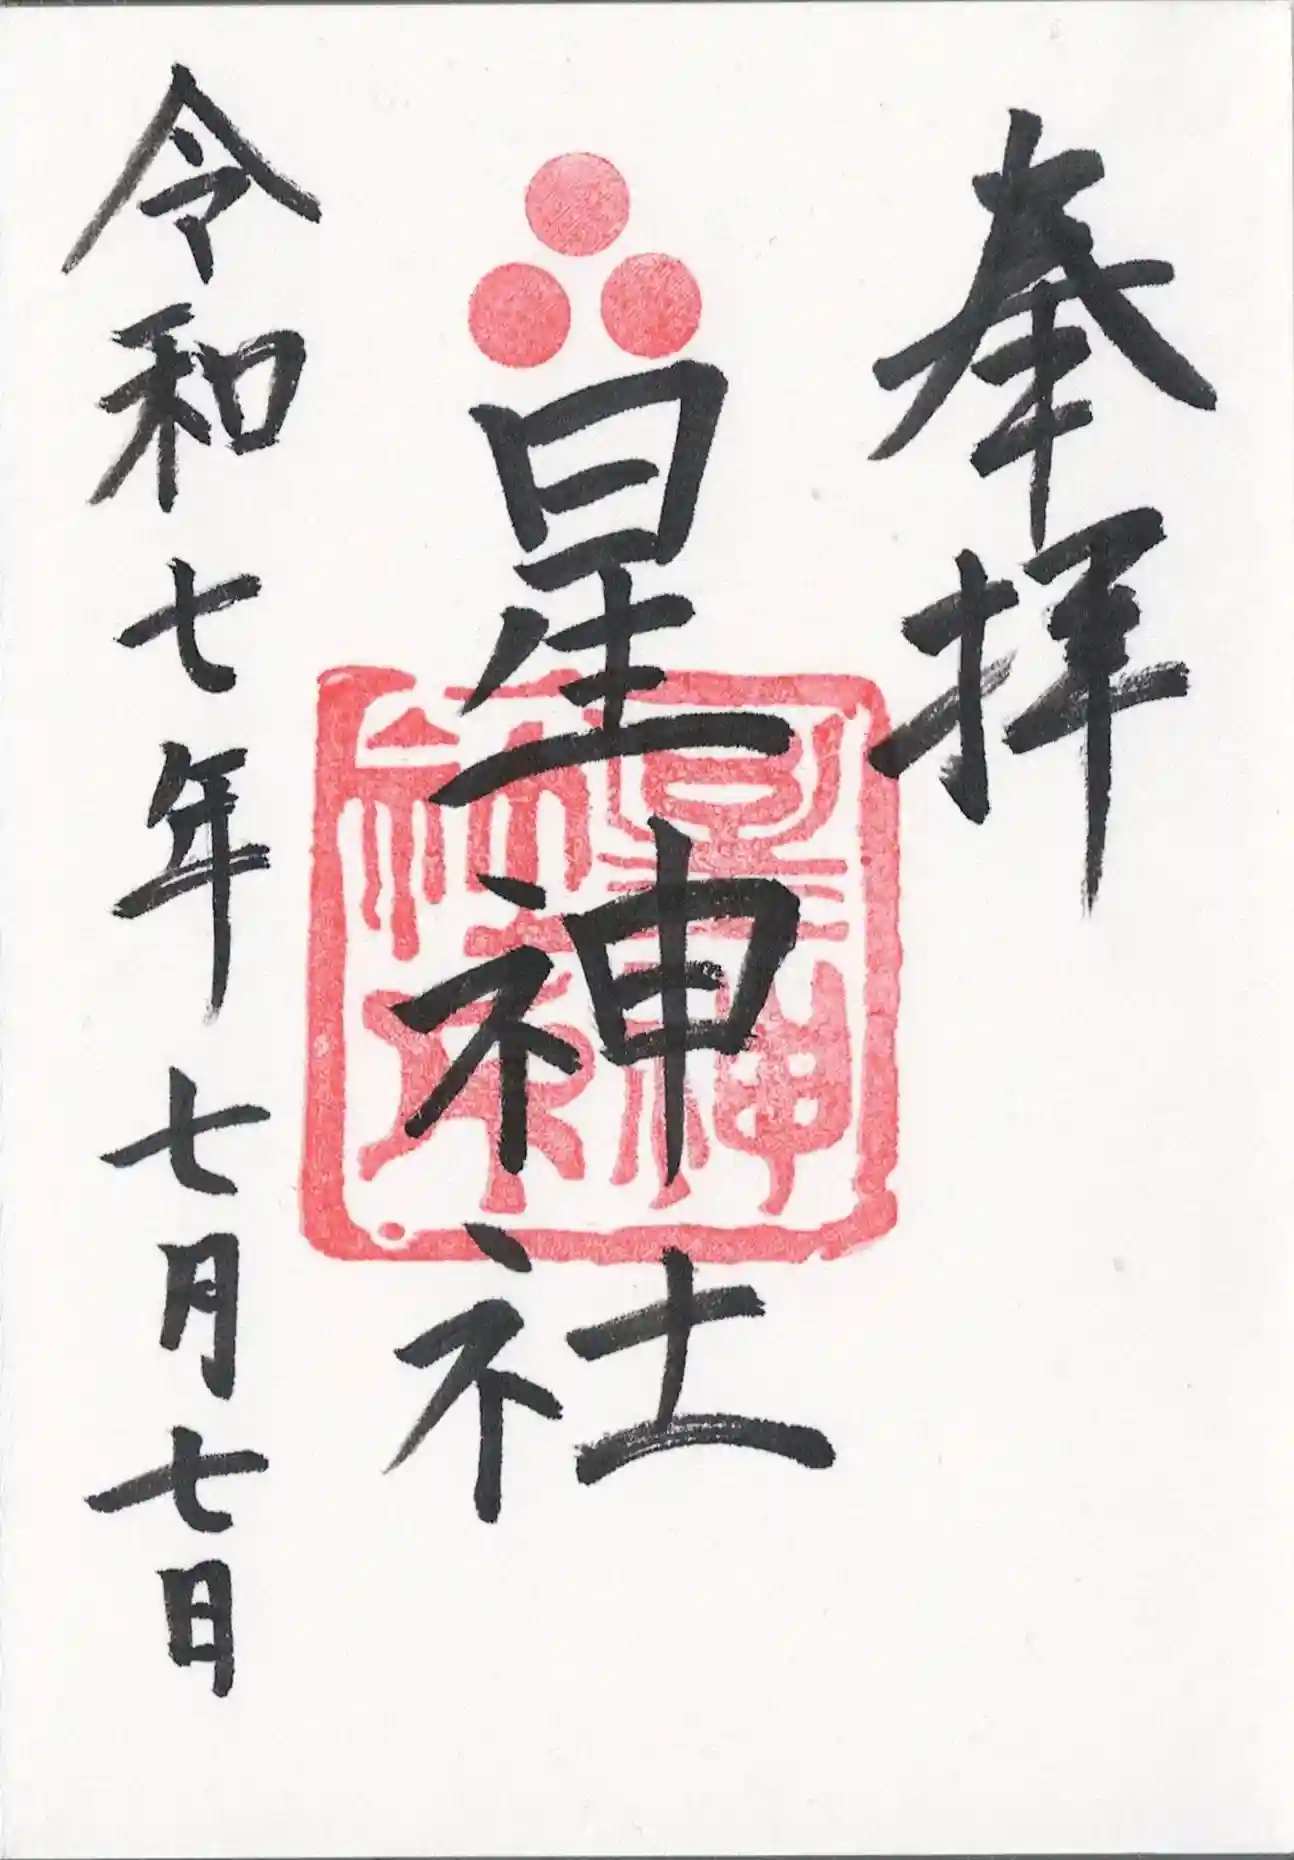 奉拝
星神社
令和七年七月七日